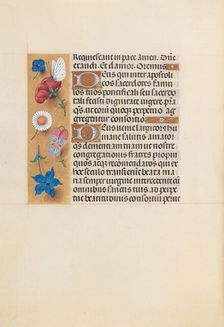 Requiescant in pace. Amen. Dne
exaudi. Et clamor. Oremus
Deus qui inter apostoli
cos sacerdotes famu
los tuos pontificali seu sacerdo
tali fecisti dignitate vigere pr
quesumus ut eorum perpetuo ag
gregentur consortio
Deus venie largitor et hu
mane salutis amator
qs clementiam tuam ut nostre
congregationis fratres propin
quos
beata ma
ria semper virgine intercedente cu
omnibus sanctis tuis ad perpe
tue beatitudinis consortium